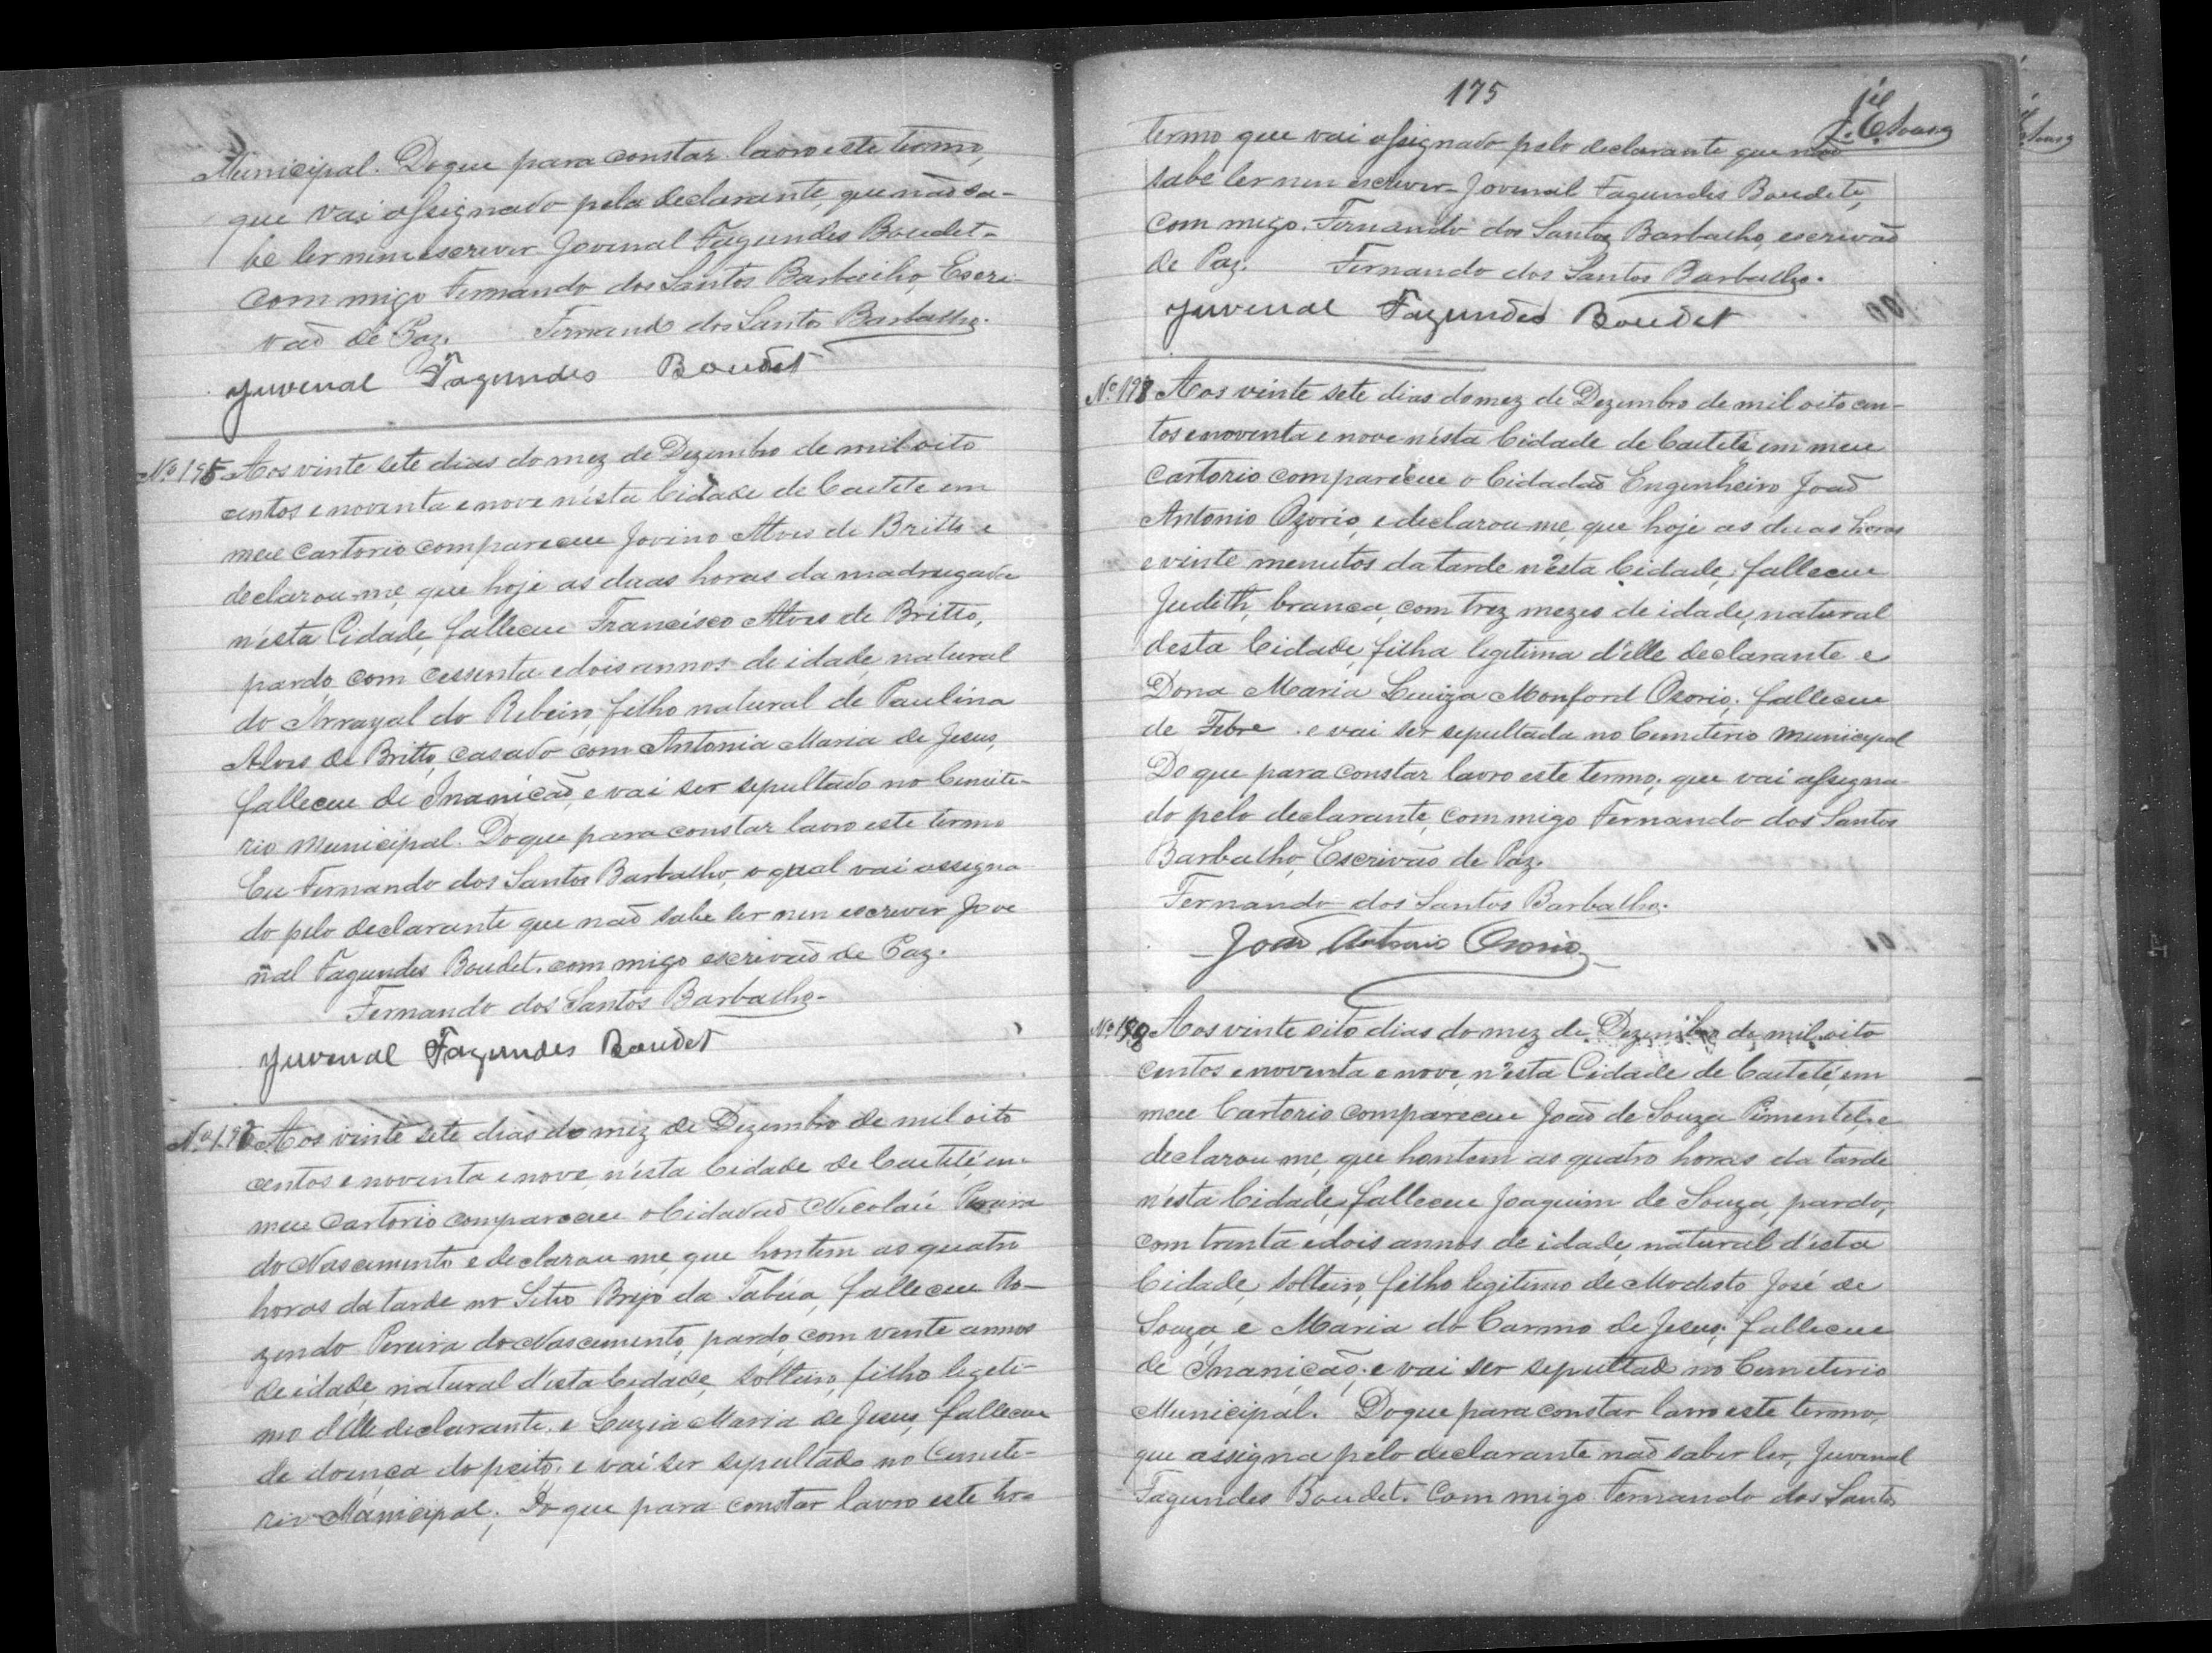 Municipal. Do que para constar lavro este termo,
que vai assignado pela declarante, que não sa-
be ler nem escrever Jovenal Fagundes Boudet-
com migo Fernando dos Santos Barbalho, Escri-
vaõ de Paz. Fernando dos Santos Barbalho.
Juvenal Fagundes Boudet
Nº 195 Aos vinte sete dias do mez de Dezembro de mil oito
centos e noventa e nove n'esta Cidade de Caetete em
meu Cartorio compareceu Jovino Alves de Britto e
declarou-me, que hoje as duas horas da madrugada
n'esta Cidade, falleceu Francisco Alves de Britto,
pardo, com cessenta e dois annos de idade, natural
do Arrayal do Ribeiro, filho natural de Paulina
Alves de Britto, casado com Antonia Maria de Jesus,
falleceu de Inanicaõ, e vai ser sepultado no Cimite-
rio Municipal. Do que para constar lavro este termo
Eu Fernando dos Santos Barbalho, o qual vai assigna
do pelo declarante que naõ sabe ler nem escrever Jove
nal Fagundes Boudet. com migo escrivaõ de Paz.
Fernando dos Santos Barbalho-
Juvenal Fagundes Boudet
Nº 196 Aos vinte sete dias do mez de Dezembro de mil oito
centos e noventa e nove, n'esta Cidade de Caetité, em
meu Cartorio compareceu o Cidadaõ Nicolau Pereira
do Nascimento e declarou me, que hontem as quatro
horas da tarde no Sitio Brejo da Tabúa, falleceu Ro-
zendo Pereira do Nascimento, pardo, com vinte annos
de idade, natural d'esta Cidade, solteiro, filho legeti-
mo d'elle declarante. e Luzia Maria de Jesus, falleceu
de doença do peito; e vai ser sepultado no Cemete-
rio Municipal; Do que para constar lavro este ter-
175
J. E. Souza
termo que vai assignado pelo declarante que naõ
sabe ler nem escrever- Jovenal Fagundes Boudet,
com migo. Fernando dos Santos Barbalho, escrivaõ
de Paz. Fernando dos Santos Barbalho.
Juvenal Fagundes Boudet
Nº 197 Aos vinte sete dias do mez de Dezembro de mil oito cen-
tos e noventa e nove n'esta Cidade de Caeteté em meu
Cartorio compareceu o Cidadaõ Engenheiro Joaõ
Antonio Ozorio, e declarou-me, que hoje as duas horas
e vinte menutos da tarde n'esta Cidade, falleceu
Judith, branca, com trez mezes de idade, natural
desta Cidade, filha legitima d'elle declarante e
Dona Maria Luiza Monford Osorio; falleceu
de Febre. e vai ser sepultada no Cemeterio Municipal
Do que para constar lavro este termo; que vai assigna-
do pelo declarante, com migo Fernando dos Santos
Barbalho, Escrivão de Paz.
Fernando dos Santos Barbalho.
Joaõ Antonio Osorio
Nº 198 Aos vinte oito dias do mez de Dezembro de mil oito
centos e noventa e nove, n'esta Cidade de Caeteté, em
meu Cartorio compareceu Joaõ de Souza Pimentel. e
declarou me, que hontem as quatro horas da tarde
n'esta Cidade, falleceu Joaquim de Souza, pardo,
com trinta e dois annos de idade, natural d'esta
Cidade, solteiro, filho legitimo de Modesto José de
Souza e Maria do Carmo de Jesus; falleceu
de Inaniçaõ; e vai ser sepultado no Cemeterio
Municipal. Do que para constar lavro este termo,
que assigna pelo declarante naõ saber ler, Juvenal
Fagundes Boudet. Com migo Fernando dos Santos